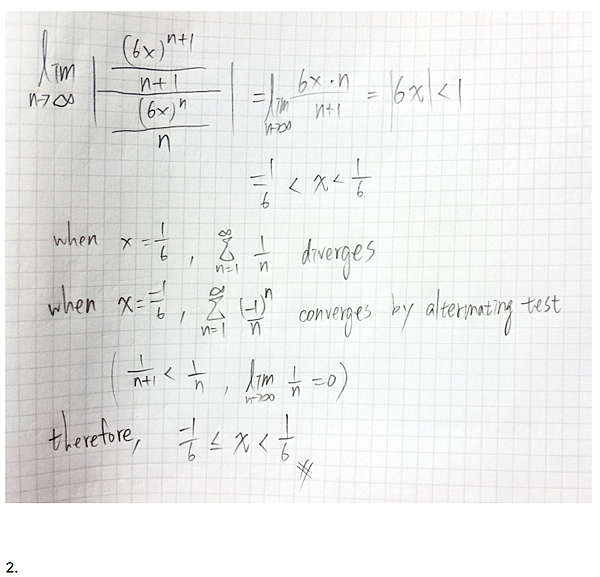 lim n→∞ | ((6x)^(n+1) / (n+1)) / ((6x)^n / n) | = lim n→∞ 6x·n / (n+1) = |6x| < 1
-1/6 < x < 1/6
when x = 1/6, ∑ n=1 ∞ 1/n diverges
when x = -1/6, ∑ n=1 ∞ (-1)^n / n converges by alternating test
( 1/(n+1) < 1/n, lim n→∞ 1/n = 0 )
therefore, -1/6 ≤ x < 1/6
2.